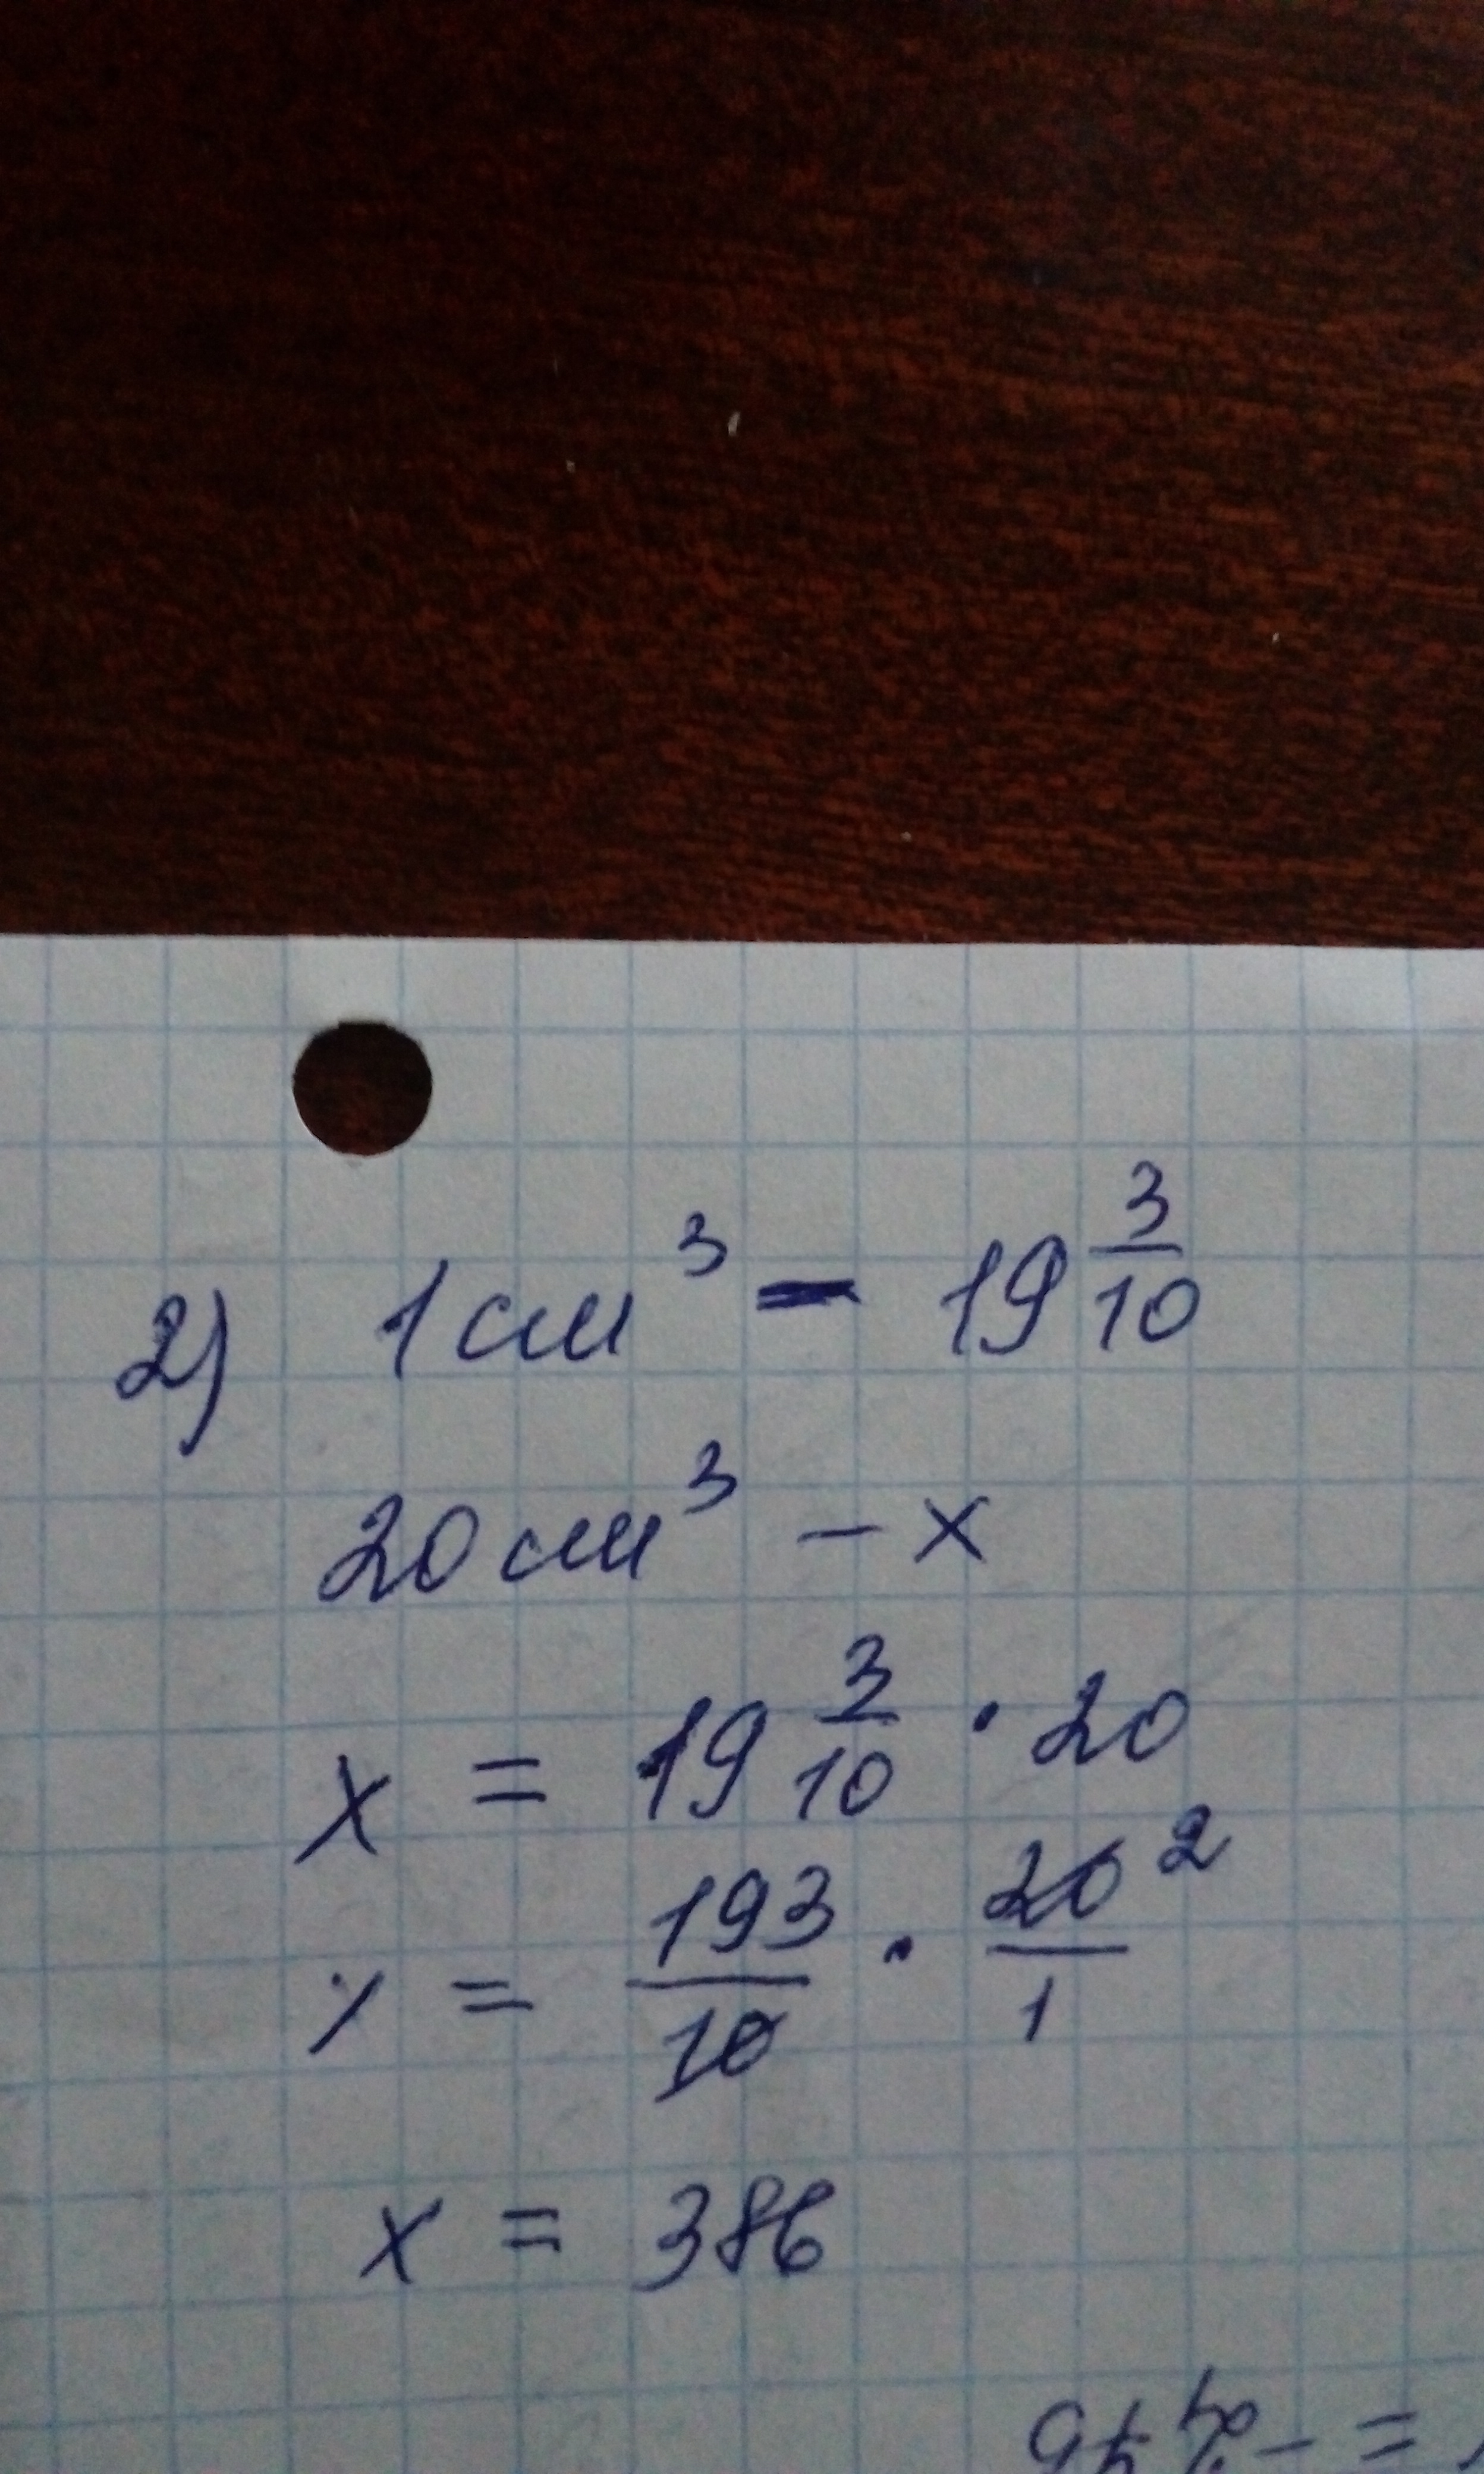 2) 1 см³ - 19 3/10
20 см³ - x
x = 19 3/10 · 20
x = 193/10 · 20/1 2
x = 386